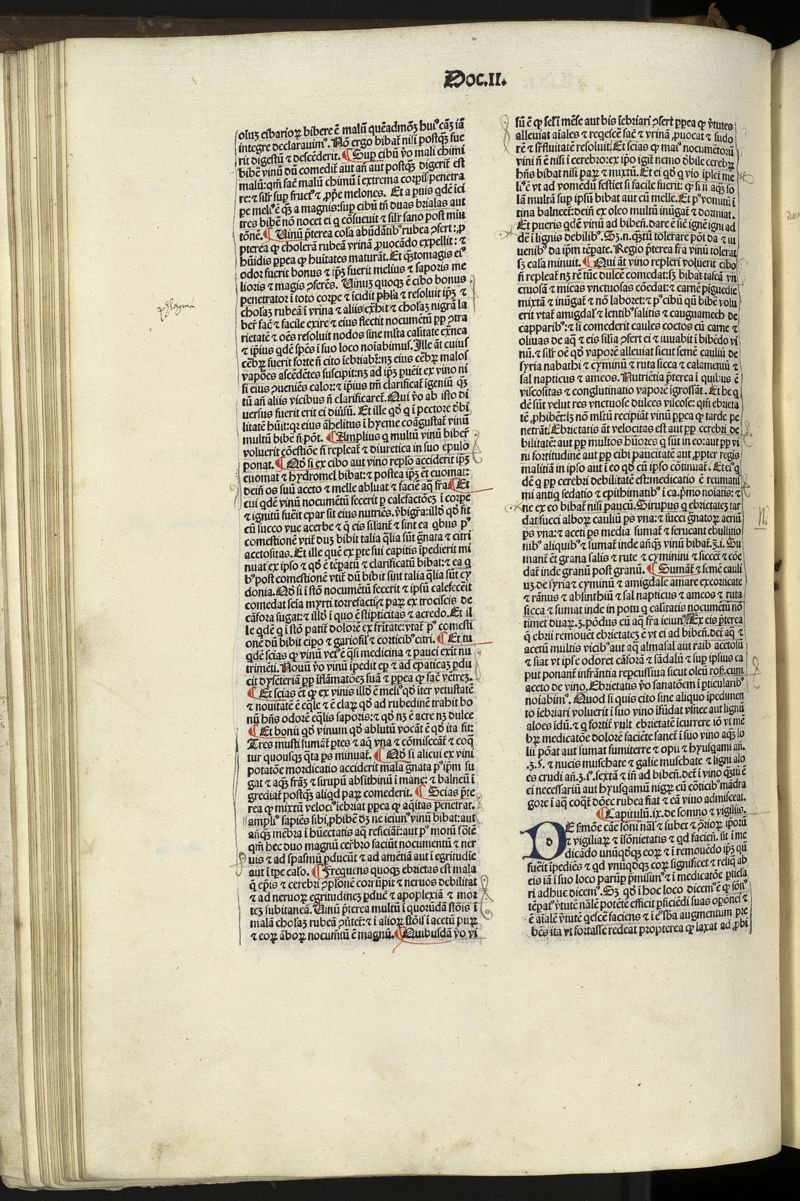 Doc.II.
oīuȝ cibarioꝝ bibere ē malū quēadmoȝ huiꝰ cāȝ iā
integre declarauimꝰ. Nō ergo bibat̄ niſi poſtqȝ fue
rit digeſtū ⁊ deſcēderit. ¶ Suꝑ cibū v̄o mali chimi
bibē vinū dū comedit̄ aut añ aut poſtqȝ digerit̄ eſt
malū: qm̄ facē malū chimū ī extrema corꝑis penetra
re: ⁊ ſilr̄ ſuꝑ fructꝰ ⁊ ꝓpe melones. Et a puis qdē ici
pe meliꝰ ē qȝ a magnis: ſuꝑ cibū tn̄ duas brialas aut
tres bibē nō nocet ei q cōſueuit ⁊ ſilr̄ ſano poſt miu
tōnē. ¶ Vinū p̄terea coſa abūdātibꝰ rubea ꝯfert: ꝓ
pterea ꝙ cholerā rubeā vrinā ꝓuocādo expellit: ⁊
hūidis ꝓpea ꝙ hūitates maturat. Et qȝ ſtomagis ei
odor fuerit bonus ⁊ ip̄ȝ fuerit melius ⁊ ſaporis me
lioris ⁊ magis ꝯferēs. Vinuȝ quoqȝ ē cibo bonus
penetrator ī toto corꝑe ⁊ īcidit phl̄a ⁊ reſoluit ip̄ȝ ⁊
cholaȝ rubeā ī vrina ⁊ aliis exhit ⁊ cholaȝ nigrā la
ber̄ facē ⁊ facile exire ⁊ eius flectit nocumētū ꝓpter ꝯtra
rietatē ⁊ oēs reſoluit nodos ſine multa calitate extnea
⁊ ip̄ius qdē ſp̄es ī ſuo loco noīabimus. Ille āt cuius
cēbꝝ fuerit forte n̄ cito īebriabr̄: nȝ eius cēbꝝ malos
vapōes aſcēdētes ſuſcipit: nȝ ad ip̄ȝ puēit ex vino ni
ſi eius ꝯueniēs calor: ⁊ ip̄ius tm̄ clarificat̄ īgeniū qȝ
tū añ aliis vicibus n̄ clarificaret̄. Qui v̄o ab iſto di
uerſus fuerit erit ei diuſū. Et ille qd̄ q ī pectore ōbi
litatē hūit: qȝ eius āhelitus ī hyeme coāguſtat̄ vinū
multū bibē n̄ pōt. ¶ Amplius q multū vinū bibeꝝ
voluerit cōeſtiōe n̄ repleat̄ ⁊ diuretica in ſuo epulo
ponat. ¶ Qd̄ ſi ex cibo aut vino repl̄o acciderit ip̄ȝ
euomat ⁊ hydromel bibat: ⁊ poſtea ip̄ȝ ēt euomat:
dein̄ os ſuū aceto ⁊ melle abluat ⁊ faciē aq̄ fra ¶ Et
cui qdē vinū nocumētū fecerit ꝑ calefactōeȝ ī corꝑe
⁊ ignitū fuerit epar ſit eius nutriēs. ṽbigra: illd̄ qd̄ fit
cū ſucco vue acerbe ⁊ q̄ eis ſilant̄ ⁊ ſint ea qbus pꝰ
comeſtionē vtit̄ duȝ bibit talia q̄lia ſūt gnata ⁊ citri
acetoſitas. Et ille que ex pte ſui capitis īpedierit mi
nuat ex ipſo ⁊ qd̄ ē tēpatū ⁊ clarificatū bibat: ⁊ ea q̄
hꝰ poſt comeſtionē vtit̄ dū bibit ſint talia q̄lia ſūt cy
donia. Qd̄ ſi ī ſtō nocumētū fecerit ⁊ ip̄ſū calefecerit
comedat ſcia myrti torrefacti: ⁊ paꝝ ex trociſcis de
cāfora ſugat: ⁊ illd̄ ī quo ē ſtipticitas ⁊ acredo. Et il
le qdē q ī ſtō patit̄ dolorē ex frītate: vtat̄ pꝰ comeſti
onē dū bibit cipo ⁊ gariofil̄ ⁊ corticibꝰ citri. ¶ Et tu
qdē ſcias ꝙ vinū vetꝰ ē qſi medicina ⁊ pauci exit nu
trimēti. Nouū v̄o vinū īpedit epꝝ ⁊ ad epaticaȝ pdu
cit dyſeteriā ꝓpter īflamātōeȝ ſuā ⁊ ꝓpea ꝙ facē vētreȝ.
¶ Et ſcias ēt ꝙ ex vinis illd̄ ē meliꝰ qd̄ iter vetuſtatē
⁊ nouitatē ē eq̄le ⁊ ē claꝝ qd̄ ad rubedinē trahit bo
nū hn̄s odorē eq̄lis ſaporis: ⁊ qd̄ nȝ ē acre nȝ dulce
¶ Et bonū qd̄ vinum qd̄ ablutū vocāt ē qd̄ ita fit:
Tres muſti ſumāt̄ ptes ⁊ aq̄ vna ⁊ cōmiſceāt̄ ⁊ coq̄
tur quouſqȝ q̄ta ps minuat̄. ¶ Qd̄ ſi alicui ex vini
potatōne mordicatio acciderit mala gnata pꝰ ip̄m ſu
gat ⁊ aq̄ȝ fraȝ ⁊ ſirupū abſīthinū ī mane: ⁊ balneū ī
grediat̄ poſtqȝ aliqd paꝝ comederit. ¶ Scias p̄te
rea ꝙ mixtū velociꝰ iēbriat ꝓpea ꝙ aq̄itas penetrat.
ampliꝰ ſapiēs ſibi ꝓhibē dȝ ne ieiunꝰ vinū bibat: aut
añqȝ mēbra ī hūectatis aq̄ reficiāt̄: aut pꝰ motū fōtē
qm̄ hec duo magnū cerebro faciūt nocumentū ⁊ ner
uis ⁊ ad ſpaſmū pducūt ⁊ ad amētiā aut ī egritudie
aut ī tꝑe caſo. ¶ Frequens quoqȝ ebrietas eſt mala
q̄ epis ⁊ cerebri ꝯplōne corrūpit ⁊ neruos debilitat
⁊ ad neruoꝝ egritudineȝ pducit ⁊ apoplexiā ⁊ mor
teȝ ſubitaneā. Vinū p̄terea multū ī quorūdā ſtōis ī
malā cholaȝ rubeā ꝯūtet̄: ⁊ ī alioꝝ ſtōis ī acetū puꝝ
⁊ eoꝝ āboꝝ nocumētū ē magnū. ¶ Quibuſdā v̄o vi
ſū ē ꝙ ſel ī mēſe aut bis īebriari ꝯfert ꝓpea ꝙ v̄tutes
alleuiat aīales ⁊ reqeſcē facē ⁊ vrinā ꝓuocat ⁊ ſudo
rē ⁊ ſrſtuitatē reſoluit. Et ſcias ꝙ maiꝰ nocumētorū
vini n̄ ē niſi ī cerebro: ex ipō igit̄ nemo d̄bile cerebꝝ
hn̄s bibat niſi paꝝ ⁊ mixtū. Et ei qd̄ q vio īplet̄ me
liꝰ ē vt ad vomēdū feſtiet ſi facile fuerit: ꝙ ſi ñ aq̄ȝ ſo
lā multā ſuꝑ ip̄ſū bibat aut cū melle. Et pꝰ vomitū ī
tina balneet̄: dein̄ ex oleo multū inūgat̄ ⁊ dormiat.
Et pueris qdē vinū ad bibēn̄. dare ē ſic̄ ignē igni ad
dē ī lignis debilibꝰ. Sȝ. n. q̄ȝtū tolerare pōt da ⁊ iu
uenibꝰ da ip̄m tēpate. Regio p̄terea fra vinū tolerat
ſȝ caſa minuit. ¶ Qui āt vino repleri voluerit cibo
n̄ repleat̄ nȝ rē tūc dulcē comedat: ſȝ bibat taleā vn̄
ctuoſā ⁊ micas vnctuoſas cōedat: ⁊ carnē pigueđiē
mixtā ⁊ inūgat̄ ⁊ nō laboret: ⁊ pꝰ cibū qū bibē volu
erit vtat̄ amugdal̄ ⁊ lentibꝰ ſalitis ⁊ cauguamech de
capparibꝰ: ⁊ ſi comederit caules coctos cū carne ⁊
oliuas de aq̄ ⁊ eis ſilia ꝯfert ei ⁊ iuuabit ī bibēdo vi
nū. ⁊ ſilr̄ oē qd̄ vaporē alleuiat ſicut ſemē cauliū de
ſyria nabathi ⁊ cyminū ⁊ ruta ſicca ⁊ calamentū ⁊
ſal napticus ⁊ ameos. Nutriētia p̄terea ī quibus ē
viſcoſitas ⁊ conglutinatio vaporē igroſſāt. Et he q̄
dē ſūt velut res vnctuoſe dulces viſcoſe: qm̄ ebrieta
tē ꝓhibēt: lȝ nō multū recipiāt vinū ꝓpea ꝙ tarde pe
netrāt. Ebrietatis āt velocitas eſt aut ꝓpter cerebri de
bilitatē: aut ꝓpter multos hūores q̄ ſūt in eo: aut ꝓpter vi
ni fortitudinē aut ꝓpter cibi paucitatē aut ꝓpter regis
malitiā in ipſo aut ī eo qd̄ cū ipſo cōtinuat̄. Et ei q̄
dē q̄ ꝓpter cerebri debilitatē eſt: medicatio ē reumati
mi antiq̄ ſedatio ⁊ epithimatibꝰ ī ca. pͥmo noīatis: ⁊
ne ex eo bibat̄ niſi paucū. Sirupus q̄ ebrietateȝ tar
dat ſucci alboꝝ cauliū ps vna: ⁊ ſucci gnatoꝝ acriū
ps vna: ⁊ aceti ps media ſumat̄ ⁊ ferueant ebullitio
nibꝰ aliquibꝰ ⁊ ſumat̄ inde añq̄ȝ vinū bibat̄.ʒ.i. Su
mant̄ ēt grana ſalis ⁊ rute ⁊ cyminini ⁊ ſiccet̄ ⁊ cōe
dat̄ inde granū poſt granū. ¶ Sumāt̄ ⁊ ſemē cauli
uȝ de ſyria: ⁊ cyminū ⁊ amigdale amare excoriicate
⁊ rānus ⁊ abſinthiū ⁊ ſal napticus ⁊ ameos ⁊ ruta
ſicca ⁊ ſumat inde in potu q̄ calitatis nocumētū nō
timet duaꝝ.ʒ. pōdus cū aq̄ fra ieiunꝰ. Ex eis p̄terea
q̄ ebrii remouēt ebrietateȝ ē vt ei ad bibēn̄. det̄ aq̄ ⁊
acetū multis vicibꝰ aut aq̄ almaſal aut raib acetoſū
⁊ fiat vt ipſe odoret̄ cāforā ⁊ ſādalū ⁊ ſuꝑ ipſius ca
put ponant̄ infrāntia repcuſſiua ſicut oleū roſ. cum
aceto de vino. Ebrietatis v̄o ſanatōem ī pticularibꝰ
noīabimꝰ. Quod ſi quis cito ſine aliquo īpedimen
to īebriari voluerit ī ſuo vino īfūdat vſnee aut lignū
aloes idū. ⁊ q̄ fortit̄ vult ebrietatē icurrere iō vt mē
bꝝ medicatōe dolorē faciēte ſanet̄ ī ſuo vino aq̄ȝ lo
lii pōnat aut ſumat fumiterre ⁊ opii ⁊ hyuſqami añ.
.ʒ.ſ. ⁊ nucis muſchate ⁊ galie muſchate ⁊ ligni alo
es crudi añ.ʒ.iꝰ. ſextā ⁊ in̄ ad bibēn̄. det̄ ī vino q̄ȝtū ē
ei neceſſariū aut hyuſqamū nigꝝ cū cōticibꝰ mādra
gore ī aq̄ coq̄t̄ dōec rubea fiat ⁊ eā viuo admiſceat.
¶ Capitulū.ix. de ſomno ⁊ vigiliis.
DE ſōmōe cāe ſōni nāl̄ ⁊ ſubet ⁊ ꝯrioꝝ ip̄orū
⁊ vigiliaꝝ ⁊ iſōnietatis ⁊ qd̄ facien̄. ſit ī me
dicādo vnūqd̄qȝ eoꝝ ⁊ ī remouēdo ip̄ȝ qū
fuerit īpediēs ⁊ qd̄ vnūqd̄qȝ eoꝝ ſignificet ⁊ reliq̄ ab
eis iā ī ſuo loco parūꝑ p̄miſimꝰ ⁊ ī medicatōe pticula
ri adhuc dicemꝰ. Sȝ qd̄ ī hoc loco dicemꝰ ē ꝙ ſōnꝰ
tēpatꝰ v̄tutē nālē potētē efficit ꝑficiēdi ſuas oꝑōnes ⁊
ē aīalē v̄tutē qeſcē faciens ⁊ ī eiꝰ ſba augmentum pre
bēs ita vt fortaſſe redeat propterea ꝙ laxat ad ꝓbi